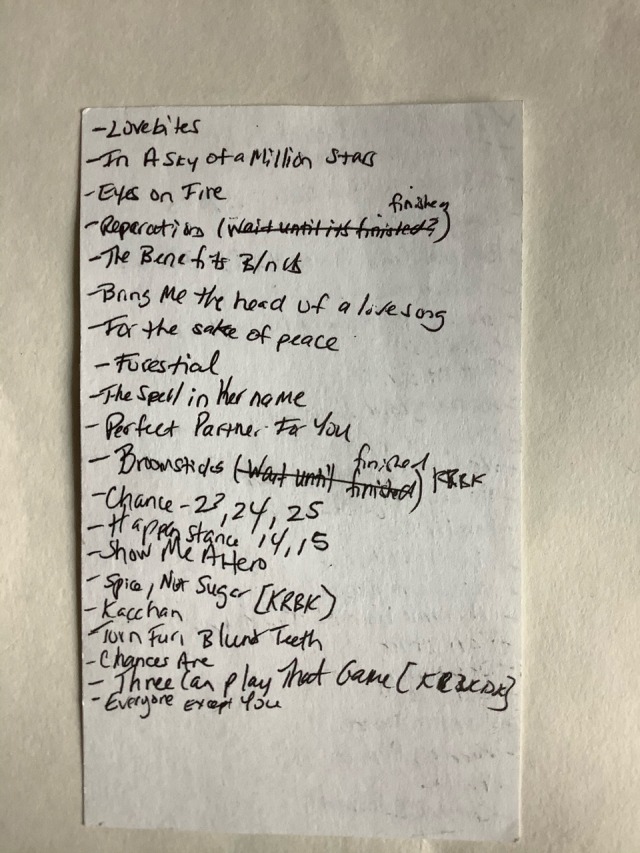 -Lovebites
-In A Sky of a Million Stars
-Eyes on Fire
finished
-Reparations (Wait until it's finished?)
-The Benefits B/n Us
-Bring Me the head of a love song
-For the sake of peace
-Forestial
-The Spell in Her name
-Perfect Partner For You
finished
-Broomsticks (Wait until finished) KRBK
-Chance - 23, 24, 25
-Happenstance 14, 15
-Show Me A Hero
-Spice, Not Sugar [KRBK)
-Kacchan
-Torn Fur, Blunt Teeth
-Chances Are
-Three Can Play That Game [KRBKDK]
-Everyone except You